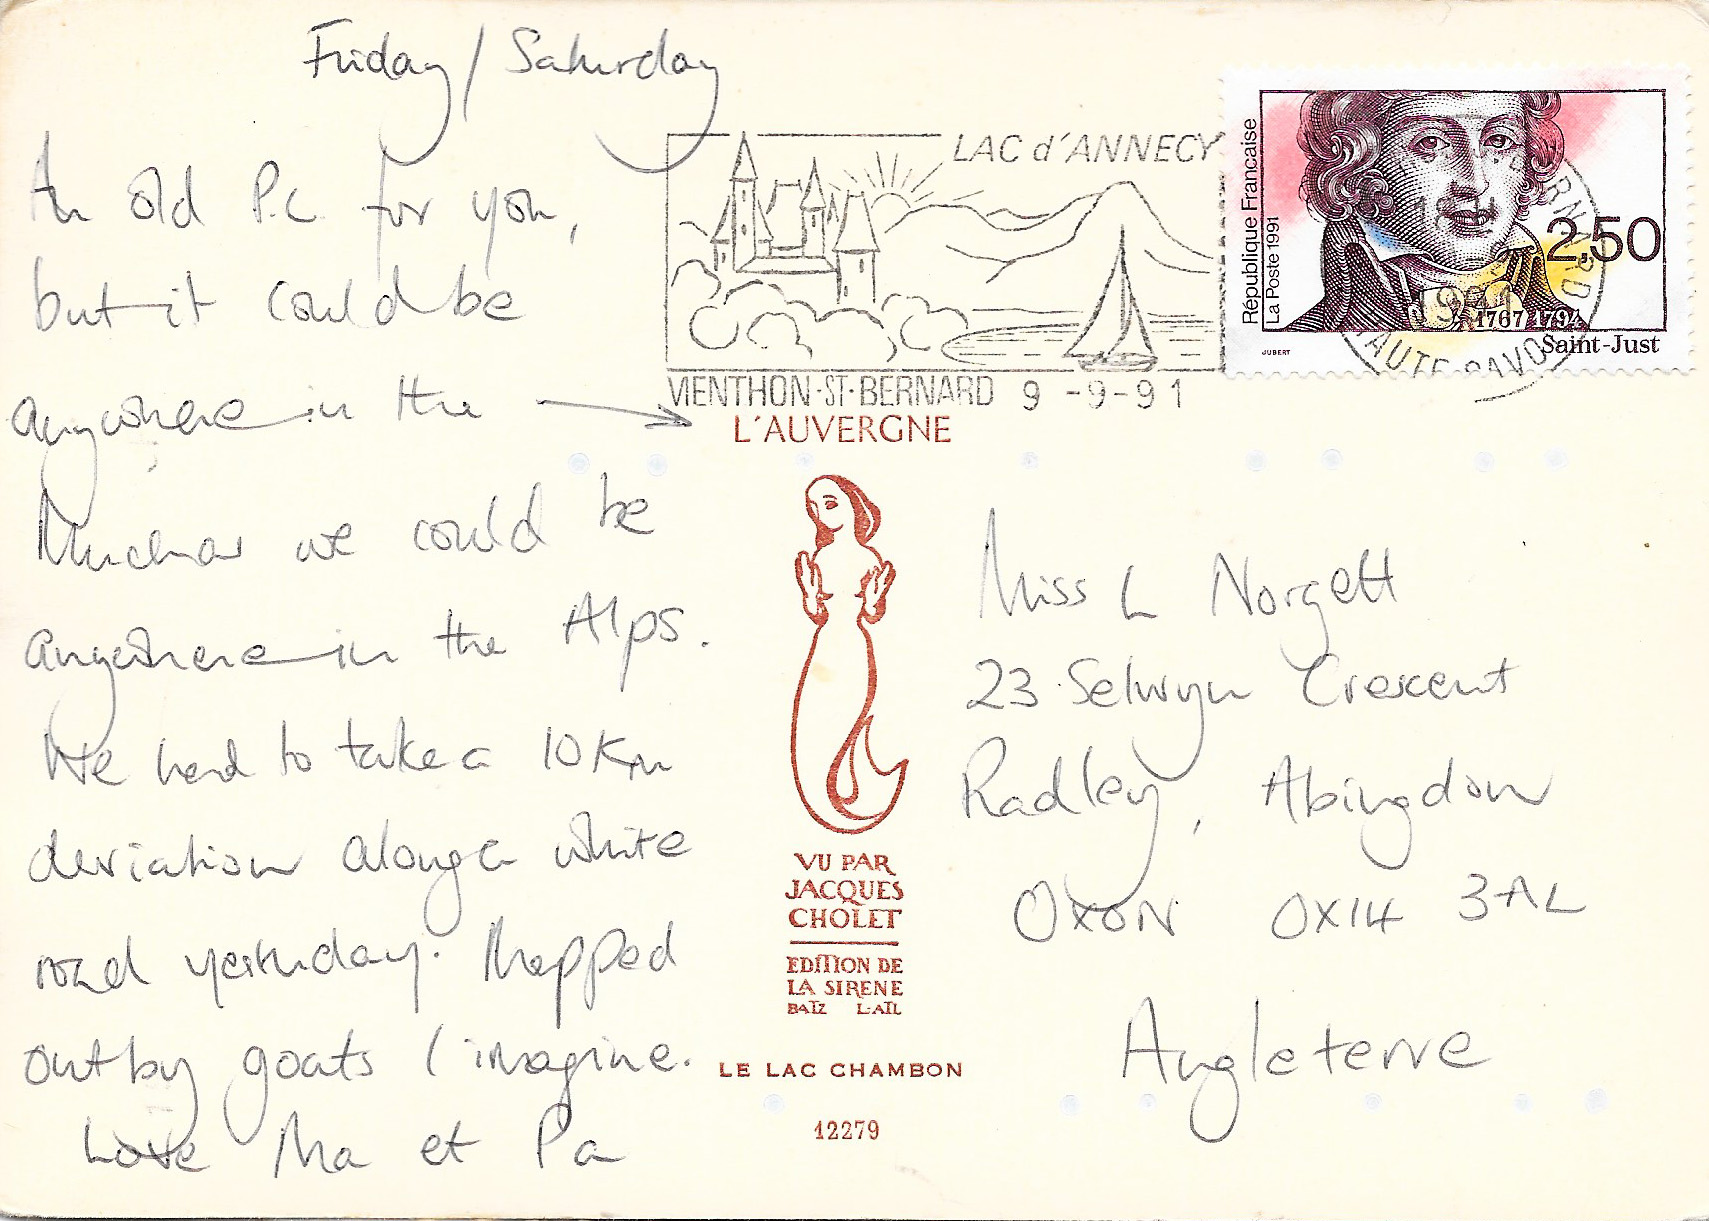 Friday / Saturday
An old P.C. for you,
but it could be
anywhere in the →
Much as we could be
anywhere in the Alps.
We had to take a 10 Km
deviation along a white
road yesterday. Mapped
out by goats I imagine.
Love Ma et Pa
LAC d'ANNECY
MENTHON-ST-BERNARD 9 -9-91
République Française
La Poste 1991
2,50
1767 1794
Saint-Just
JUBERT
1991
L'AUVERGNE
VU PAR
JACQUES
CHOLET
EDITION DE
LA SIRENE
BATZ L-ATL
LE LAC CHAMBON
12279
Miss L Norgett
23 Selwyn Crescent
Radley, Abingdon
OXON OX14 3AL
Angleterre